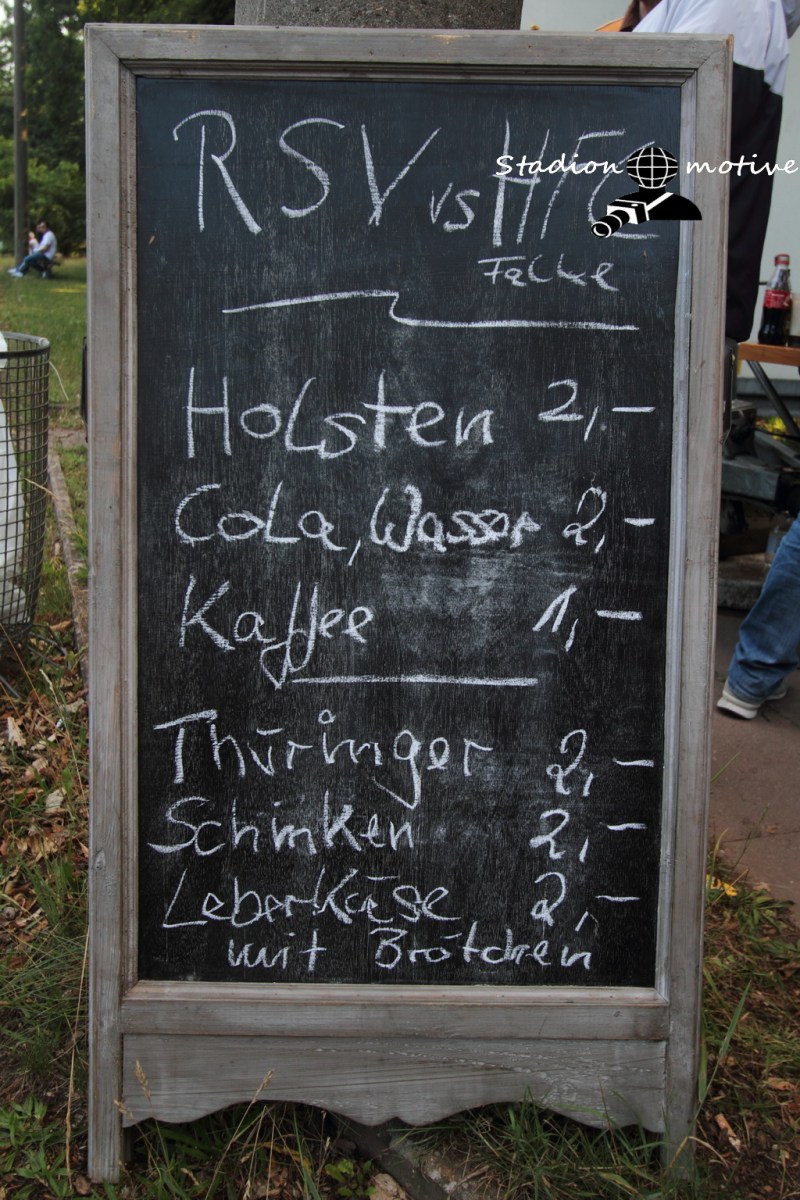 RSV vs HFC
Stadion motive
Falke
Holsten 2,-
Cola, Wasser 2,-
Kaffee 1,-
Thüringer 2,-
Schinken 2,-
Leberkäse 2,-
mit Brötchen